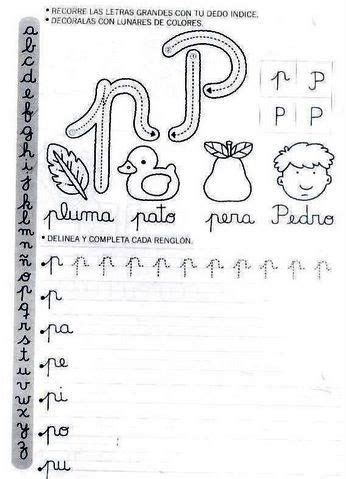 • RECORRE LAS LETRAS GRANDES CON TU DEDO INDICE.
• DECÓRALAS CON LUNARES DE COLORES.
p P
p P
P P
pluma pato pera Pedro
• DELINEA Y COMPLETA CADA RENGLÓN.
p p p p p p p p p p p
p
pa
pe
pi
po
pu
a
b
c
d
e
f
g
h
i
j
k
l
m
n
ñ
o
p
q
r
s
t
u
v
w
x
y
z